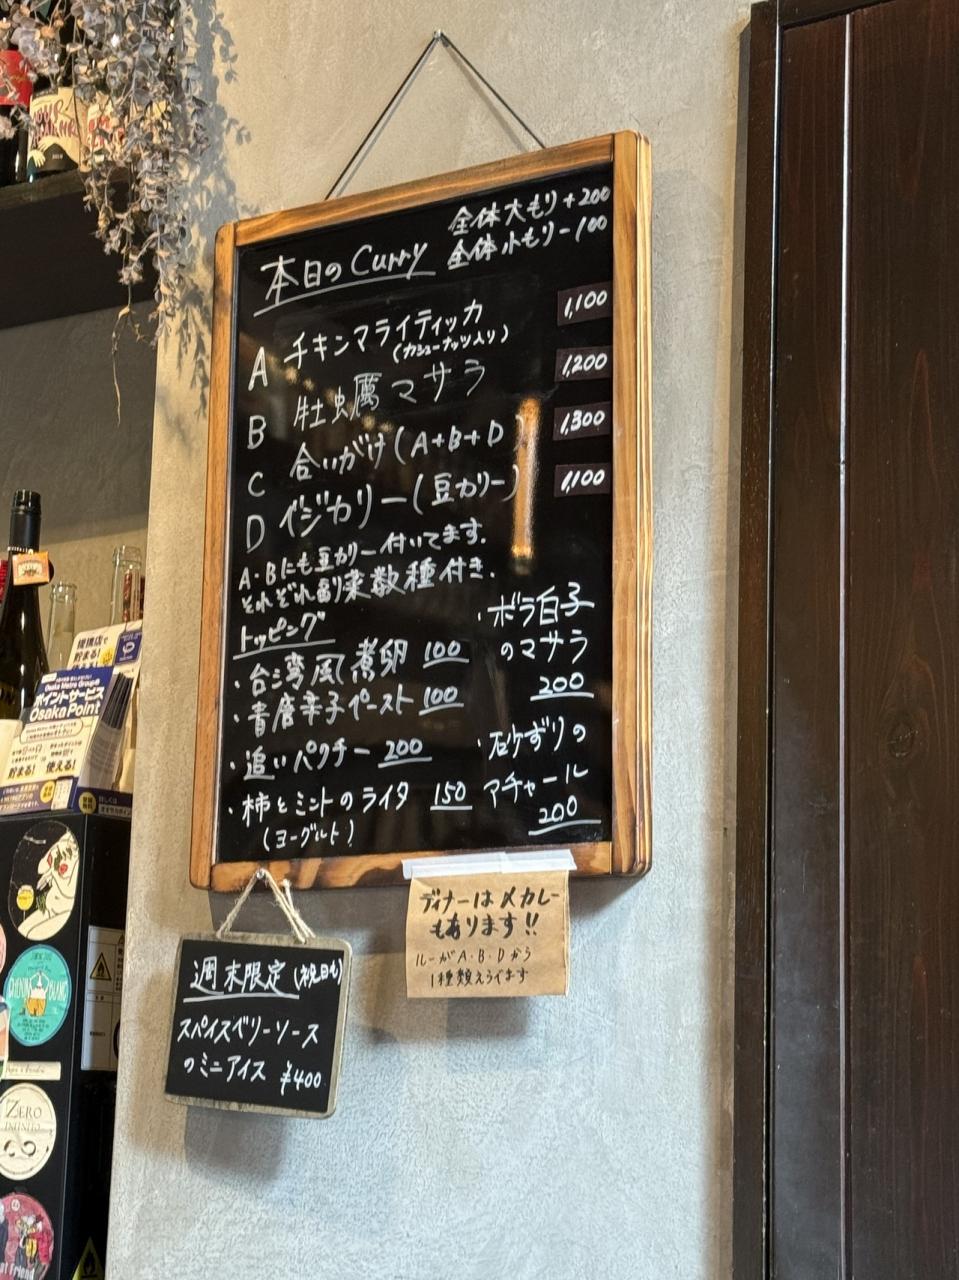 本日のCurry
全体大もり+200
全体小もり-100
A チキンマライティッカ 1,100
(カシューナッツ入り)
B 牡蠣マサラ 1,200
C 合いがけ(A+B+D) 1,300
D ベジカリー(豆カリー) 1,100
A・Bにも豆カリー付いてます.
それぞれ副菜数種付き.
トッピング
・台湾風煮卵 100
・青唐辛子ペースト 100
・追いパクチー 200
・柿とミントのライタ 150
(ヨーグルト)
・ボラ白子
のマサラ
200
・砂ずりの
アチャール
200
ディナーは〆カレー
もあります!!
ルーがA・B・Dから
1種類えらべます
週末限定(祝日も)
スパイスベリーソース
のミニアイス ¥400
提携店で
貯まる!
Osaka Metro Groupの
ポイントサービス
Osaka Point
貯まる! 使える!
ZERO
INFINITO